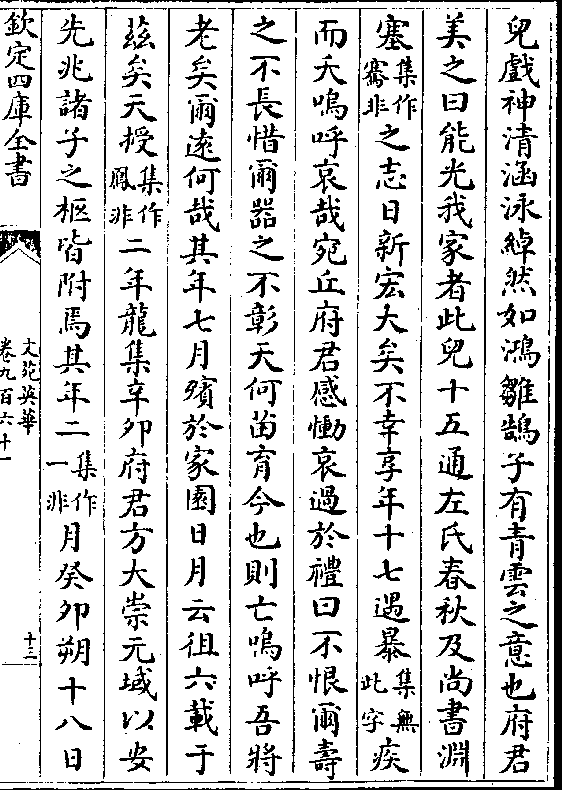 兒戲神清涵泳綽然如鴻雛鵠子有青雲之意也府君
美之曰能光我家者此兒十五通左氏春秋及尚書淵
塞集作騫非之志日新宏大矣不幸享年十七遇暴集無此字疾
而夭嗚呼哀哉宛丘府君感慟哀過於禮曰不恨爾壽
之不長惜爾器之不彰天何苗育今也則亡嗚呼吾將
老矣爾遠何哉其年七月殯於家園日月云徂六載于
茲矣天授集作鳳非二年龍集辛卯府君方大崇元域以安
先兆諸子之柩皆附焉其年二集作一非月癸卯朔十八日
欽定四庫全書
文苑英華
卷九百六十一
十三